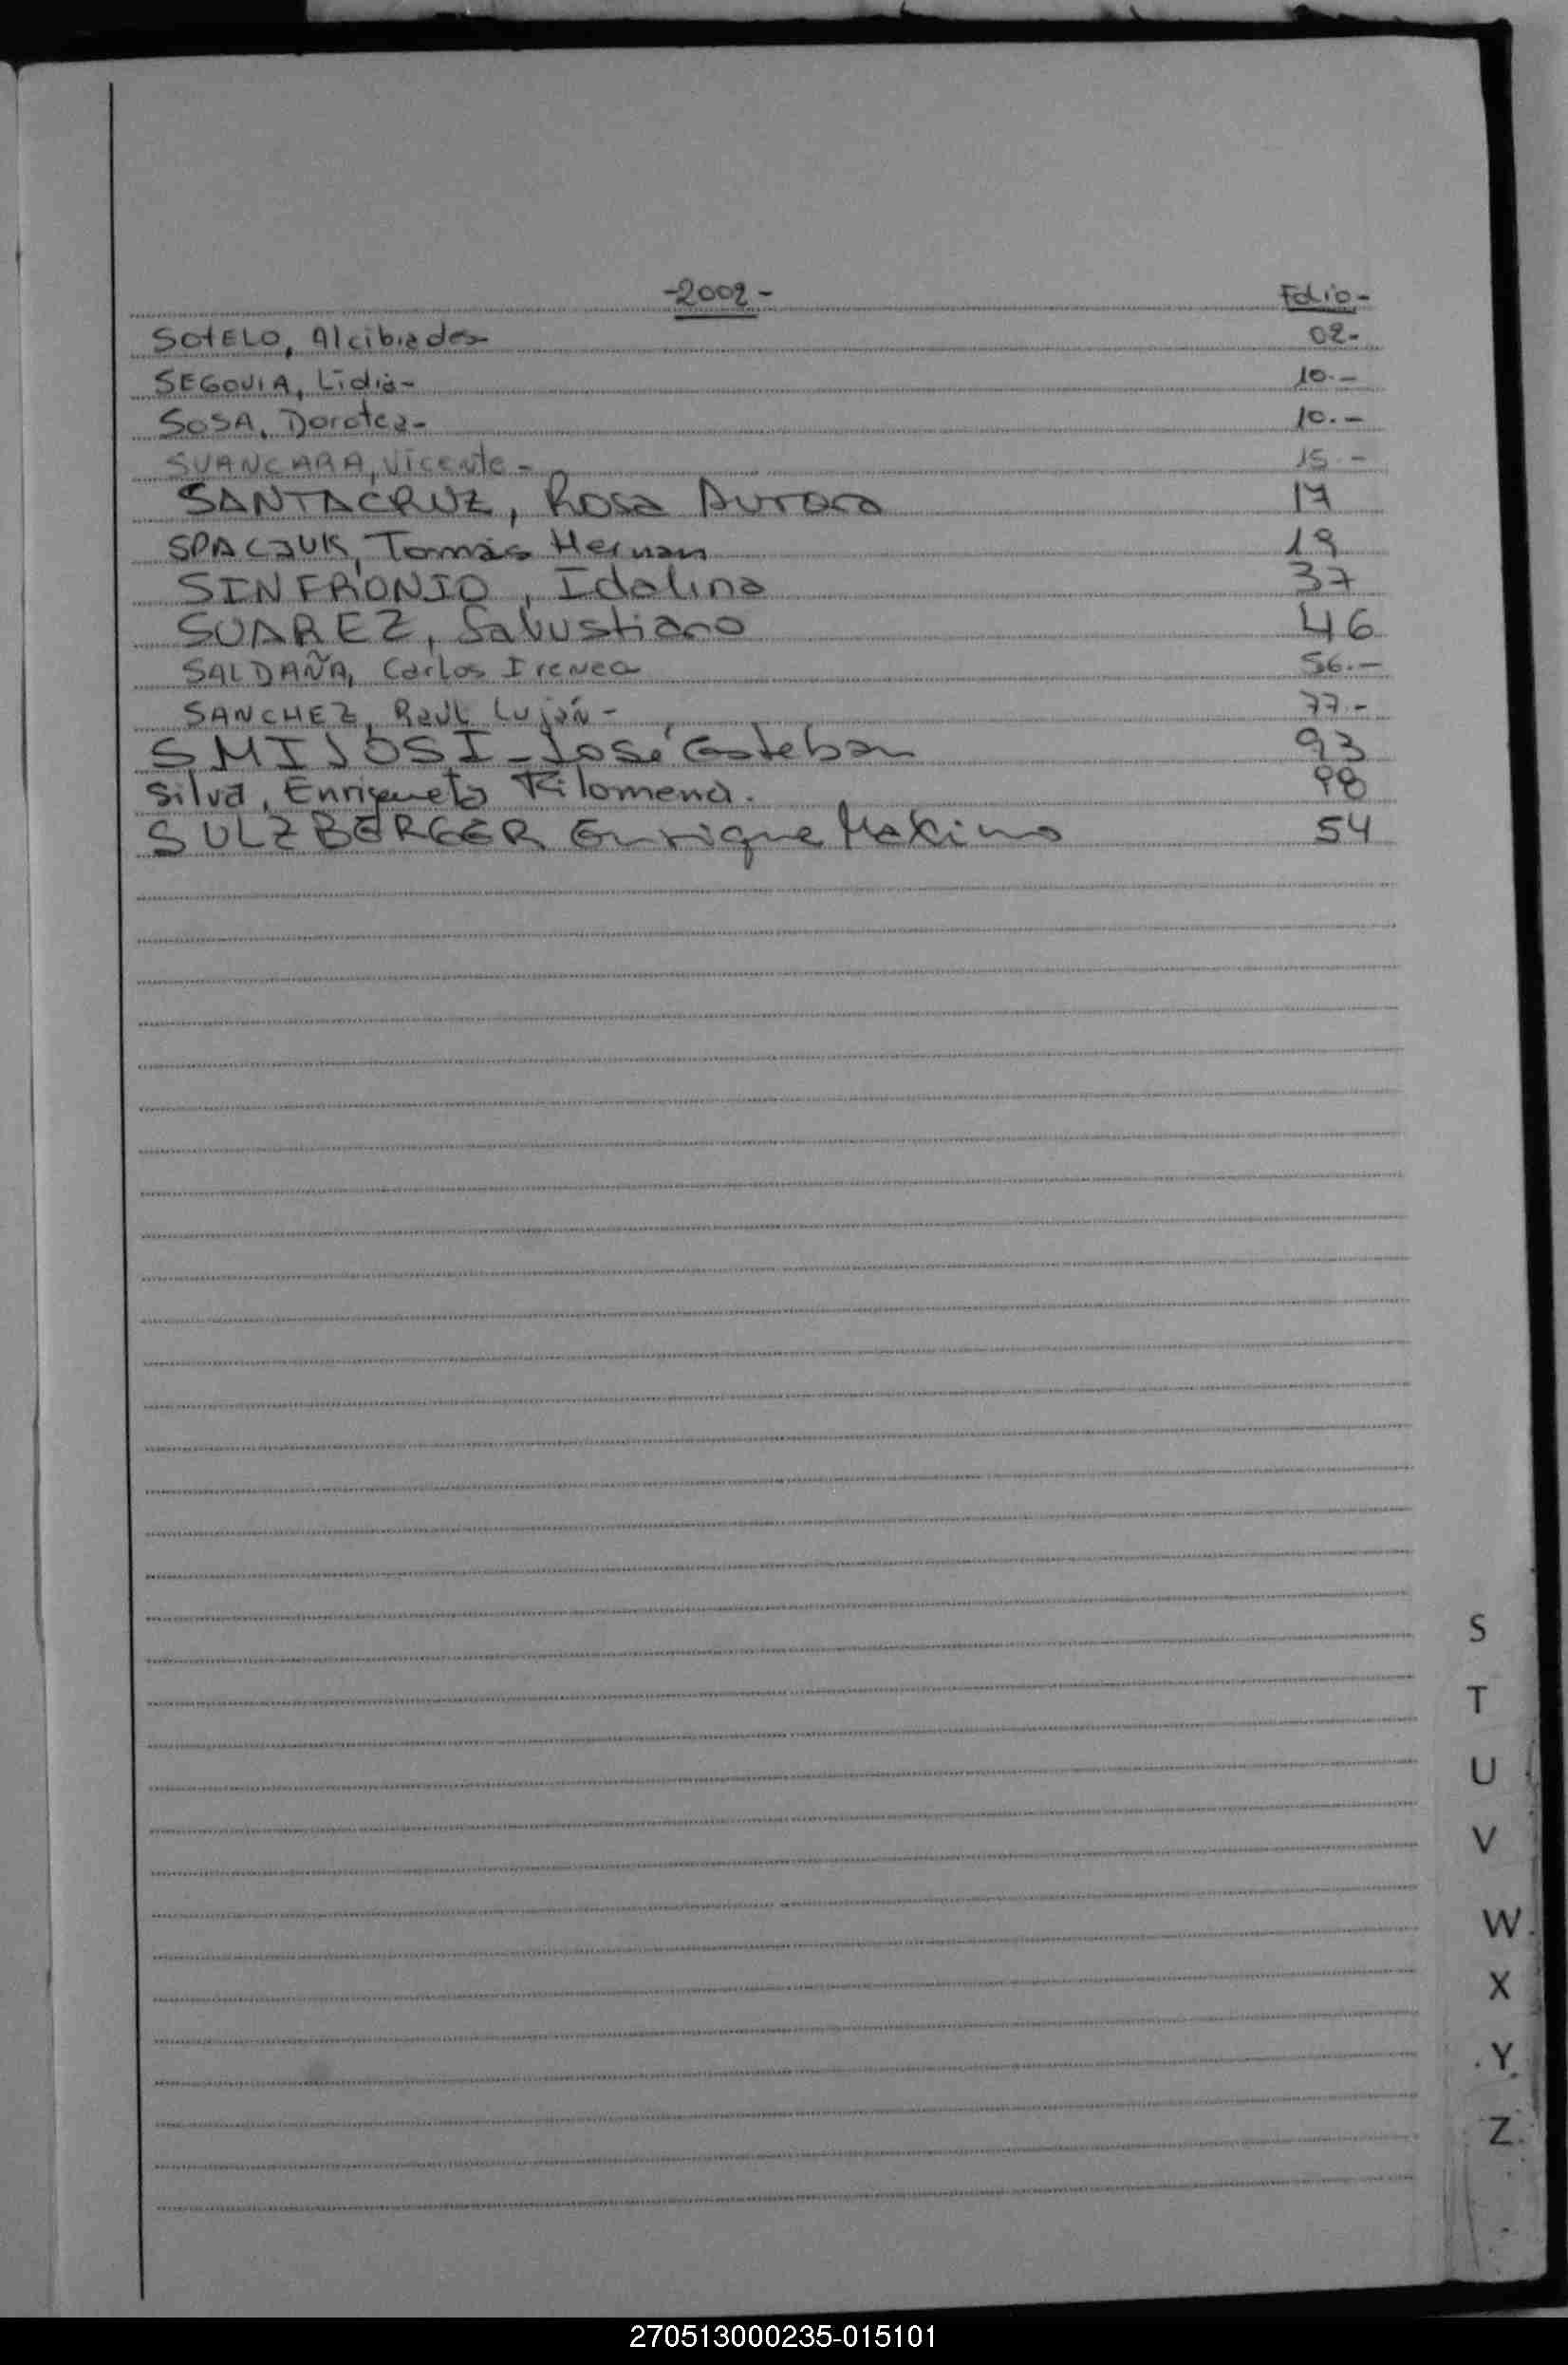 -2002- Folio-
SOTELO, Alcibiades- 02-
SEGOVIA, Lidia- 10.-
SOSA, Dorotea- 10.-
SVANCARA, Vicente- 15.-
SANTACRUZ, Rosa Aurora 17
SPACJUK, Tomás Hernan 19
SINFRONIO, Idalina 37
SUAREZ, Salustiano 46
SALDAÑA, Carlos Ireneo 56.-
SANCHEZ, Raul Luján- 77.-
José Esteban 93
Silva, Enriqueta Filomena. 98
SULZBERGER Enrique Maximo 54
S
T
U
V
W
X
Y
Z
270513000235-015101